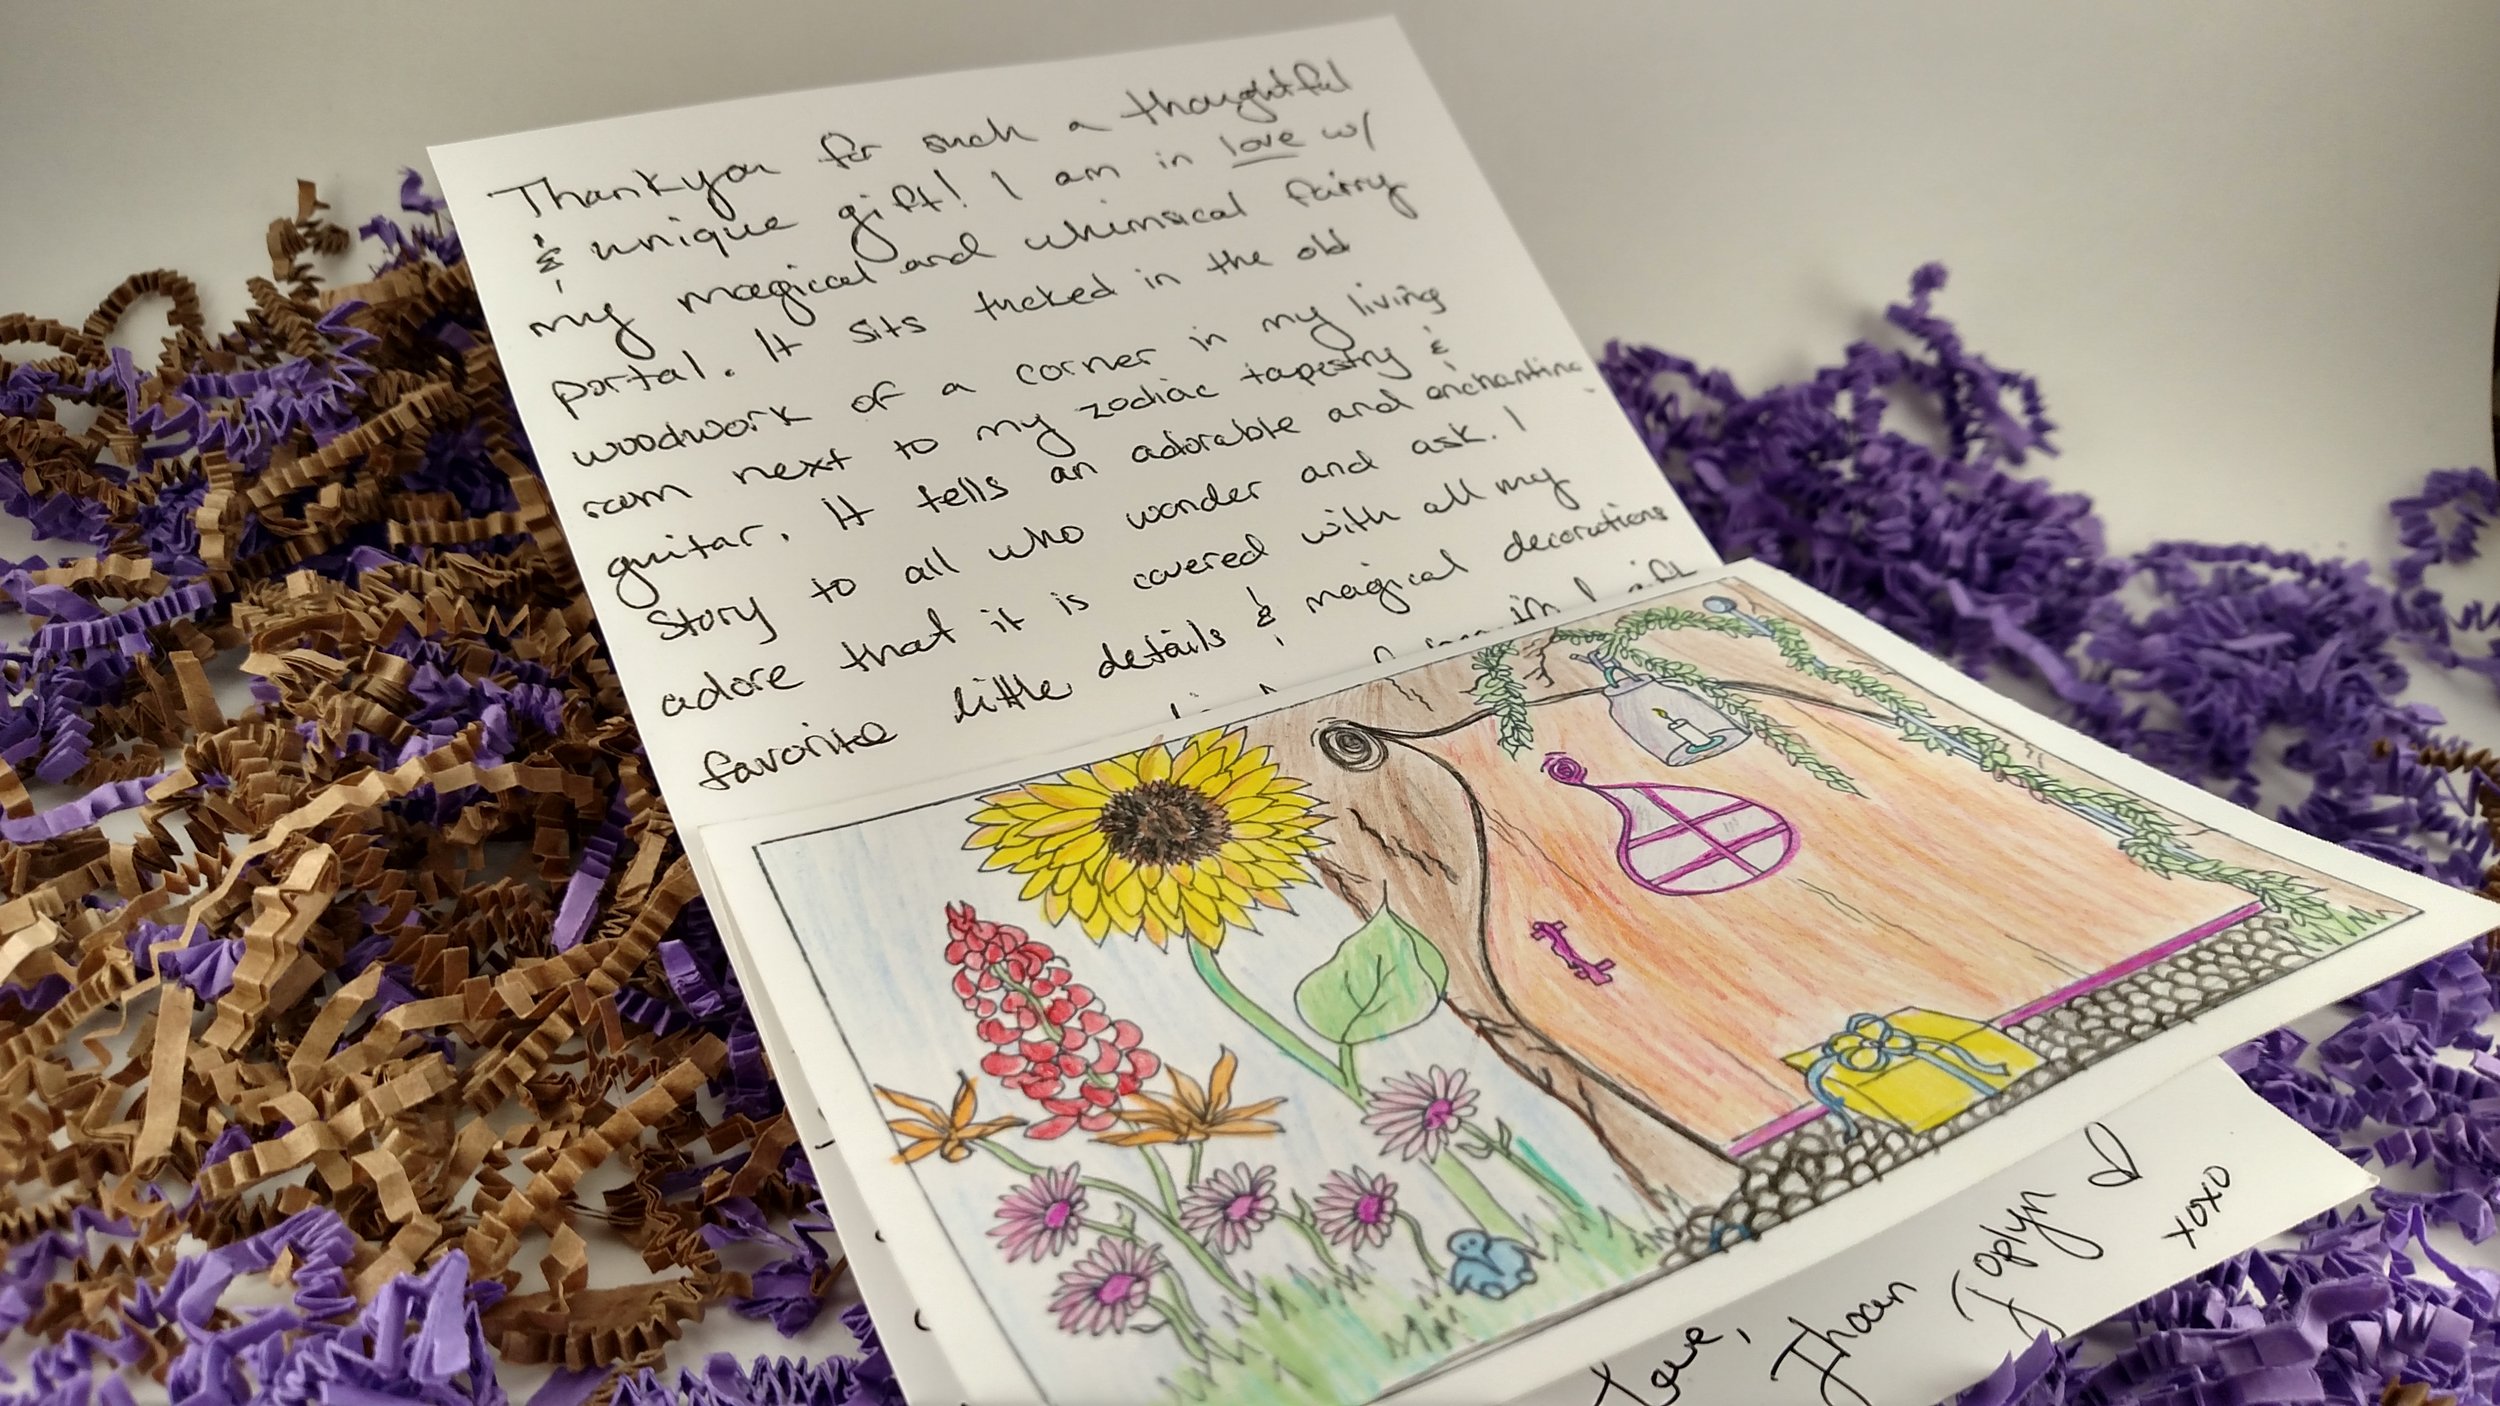 Thankyou for such a thoughtful
& unique gift! I am in love w/
my magical and whimsical fairy
portal. It sits tucked in the old
woodwork of a corner in my living
room next to my zodiac tapestry &
guitar. It tells an adorable and enchanting
story to all who wonder and ask. I
adore that it is covered with all my
favorite little details & magical decorations
Love,
Jhoan
Joplyn
xoxo